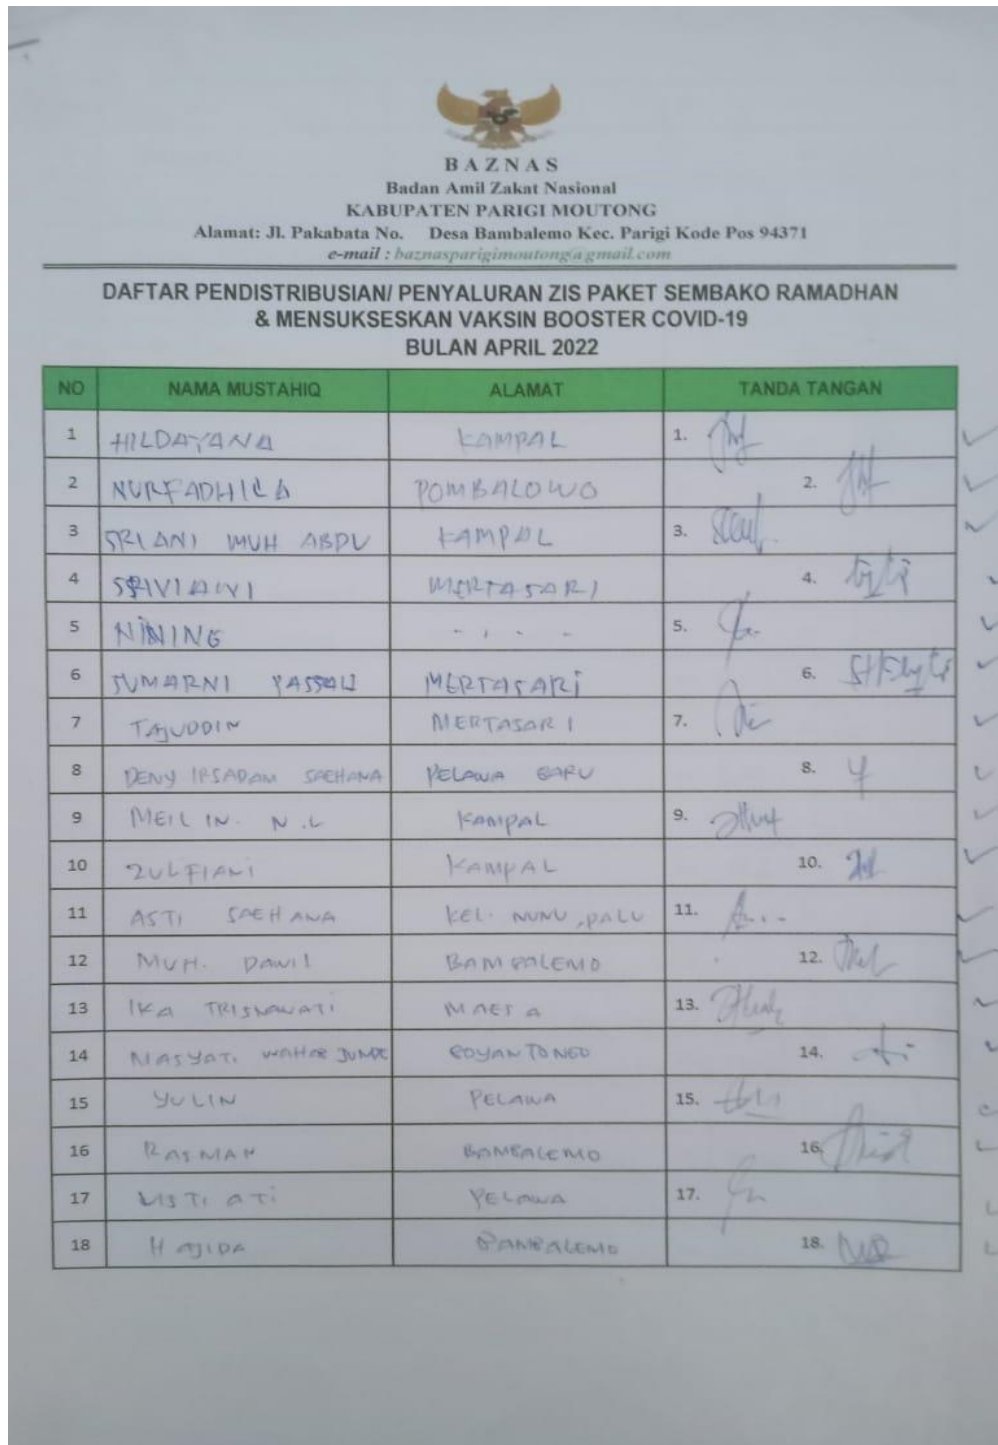 BAZNAS
Badan Amil Zakat Nasional
KABUPATEN PARIGI MOUTONG
Alamat: Jl. Pakabata No. Desa Bambalemo Kec. Parigi Kode Pos 94371
e-mail : baznasparigimoutong@gmail.com
DAFTAR PENDISTRIBUSIAN/ PENYALURAN ZIS PAKET SEMBAKO RAMADHAN
& MENSUKSESKAN VAKSIN BOOSTER COVID-19
BULAN APRIL 2022
NO NAMA MUSTAHIQ ALAMAT TANDA TANGAN
1 HILDAYANA KAMPAL 1.
2 NURFADHILA POMBALOWO 2.
3 SRI ANI MUH ABDU KAMPAL 3.
4 SRIVIAWI MERTASARI 4.
5 NINING 5.
6 SUMARNI PASSAU MERTASARI 6.
7 TAJUDDIN MERTASARI 7.
8 DENY IRSADAM SAEHANA PELAWA BARU 8.
9 MEILIN. N.L KAMPAL 9.
10 ZULFIANI KAMPAL 10.
11 ASTI SAEHANA KEL. NUNU, PALU 11.
12 MUH. DAWIL BAMBALEMO 12.
13 IKA TRISNAWATI MAESA 13.
14 MASYATI WAHAB 14.
15 YULIN PELAWA 15.
16 RASMAN BAMBALEMO 16.
17 PELAWA 17.
18 HAJIDA BAMBALEMO 18.